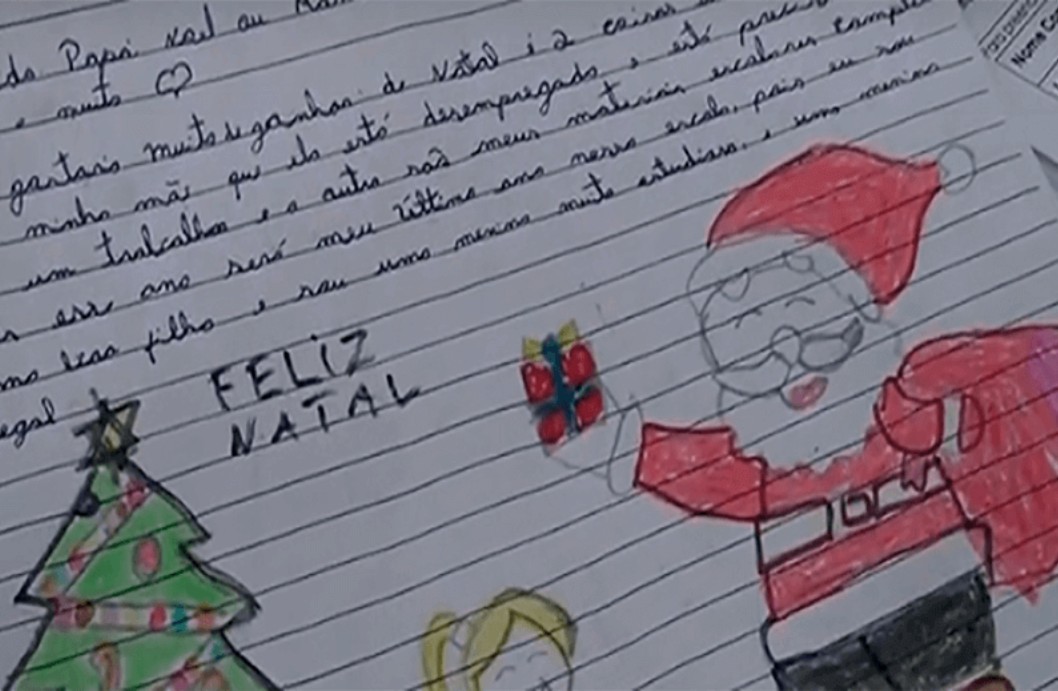 do Papai Noel eu
e muito
gostaria muito de ganhar de Natal é 2 coisas
minha mãe que ela está desempregada e está
um trabalho e a outra são meus materiais escolares
esse ano será meu último ano nessa escola, pois eu sou
boa filha e sou uma menina muito estudiosa, e uma menina
egal
FELIZ
NATAL
Nome Co